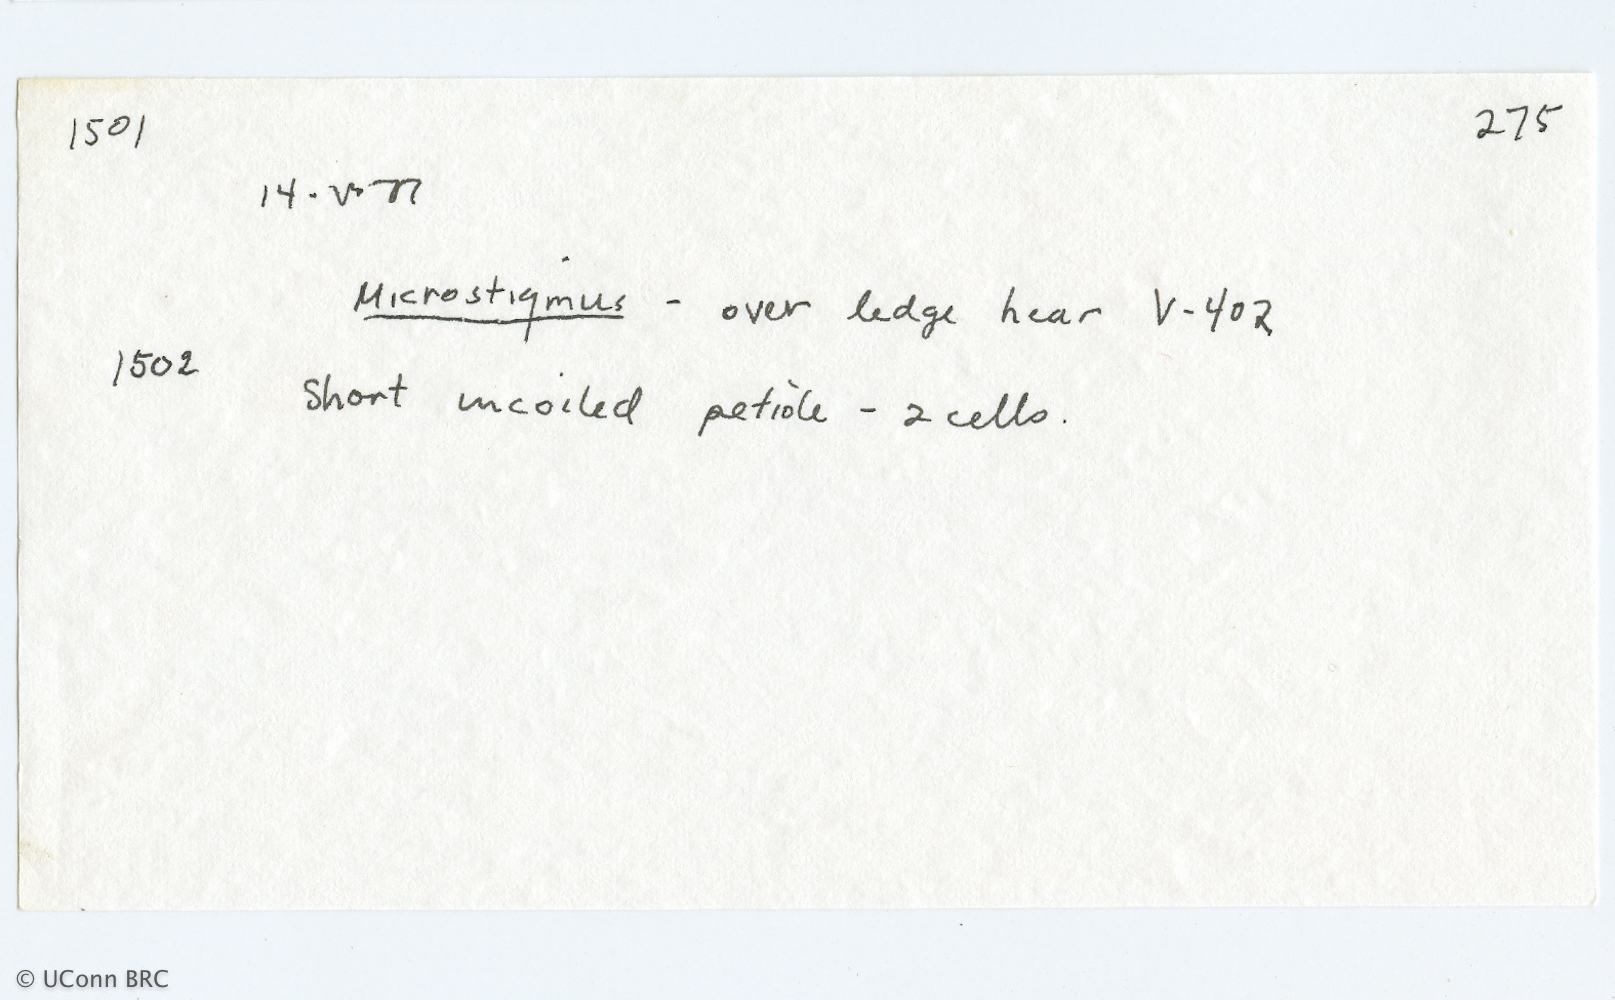 1501
275
14-V-77
Microstigmus - over ledge near V-402
1502
Short uncoiled petiole - 2 cells.
© UConn BRC